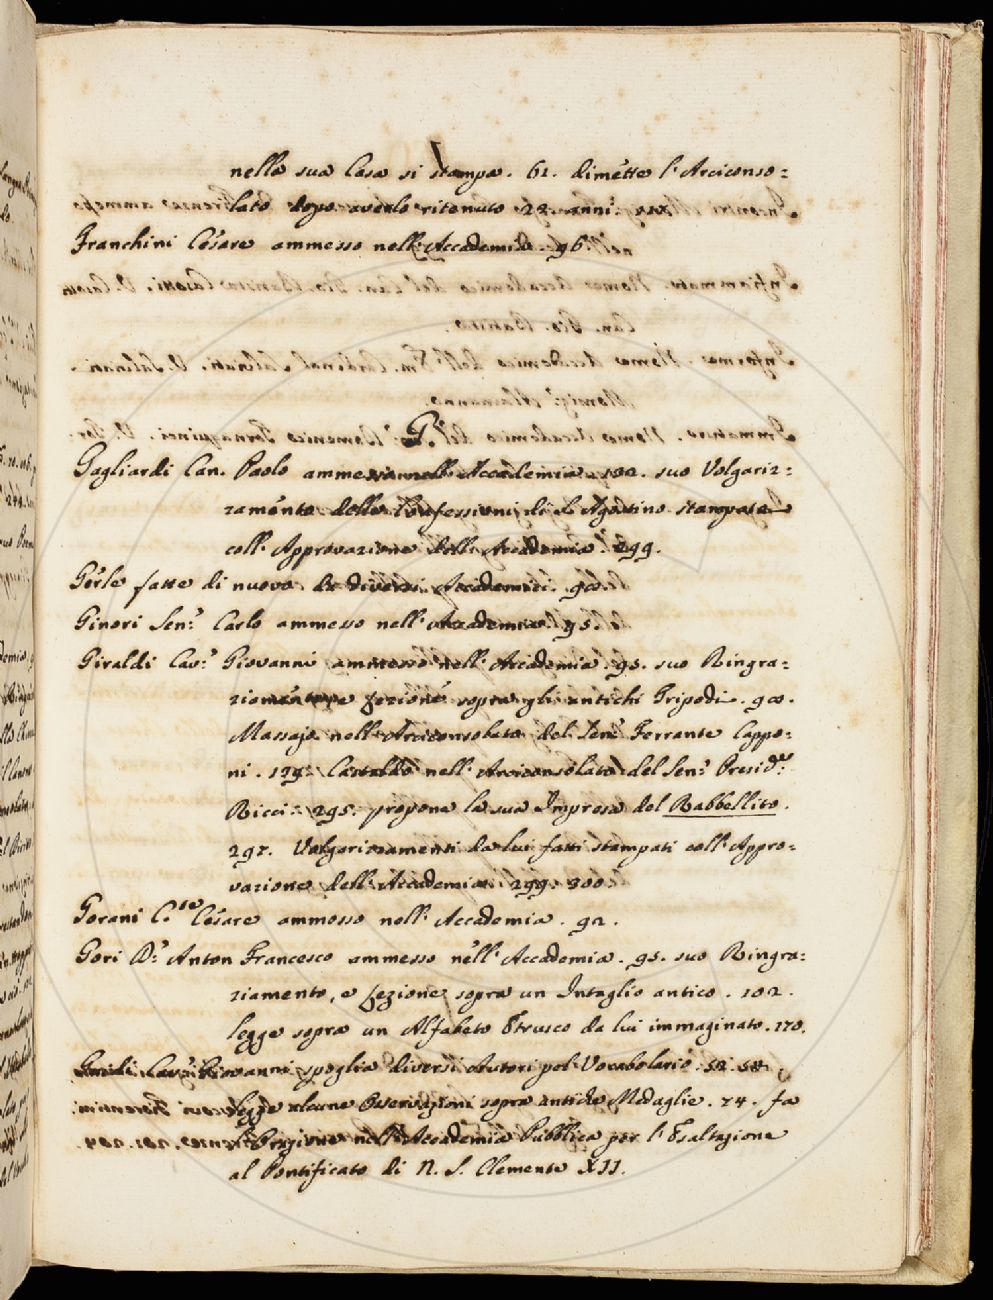 nella sua Casa si stampa. 61. dimette l'Arciconso=
lato dopo averlo ritenuto 22. anni.
Franchini Cesare ammesso nell'Accademia. 96.
G.
Gagliardi Can. Paolo ammesso nell'Accademia. 102. suo Volgariz=
zamento delle Confessioni di S. Agostino stampato
coll'Approvazione dell'Accademia. 299.
Gerle fatte di nuovo da diversi Accademici. 90.
Ginori Sen.r Carlo ammesso nell'Accademia. 95.
Giraldi Cav.r Giovanni ammesso nell'Accademia. 95. suo Ringra=
ziamento e Lezione sopra gli antichi Tripodi. 98.
Massajo nell'Arciconsolato del Sen.r Ferrante Cappo=
ni. 179. Castaldo nell'Arciconsolato del Sen.r Presid.te
Ricci. 295. propone la sua Impresa del Rabbellito.
297. Volgarizzamenti da lui fatti stampati coll'Appro=
vazione dell'Accademia. 299. 300.
Gorani C.te Cesare ammesso nell'Accademia. 92.
Gori D.r Anton Francesco ammesso nell'Accademia. 95. suo Ringra=
ziamento, e Lezione sopra un Intaglio antico. 102.
legge sopra un Alfabeto Etrusco da lui immaginato. 170.
Guidi Cav.r Giovanni spoglia diversi Autori pel Vocabolario. 52. 58.
legge alcune Osservazioni sopra antiche Medaglie. 74. fa
l'Orazione nell'Accademia Pubblica per l'Esaltazione
al Pontificato di N. S. Clemente XII.